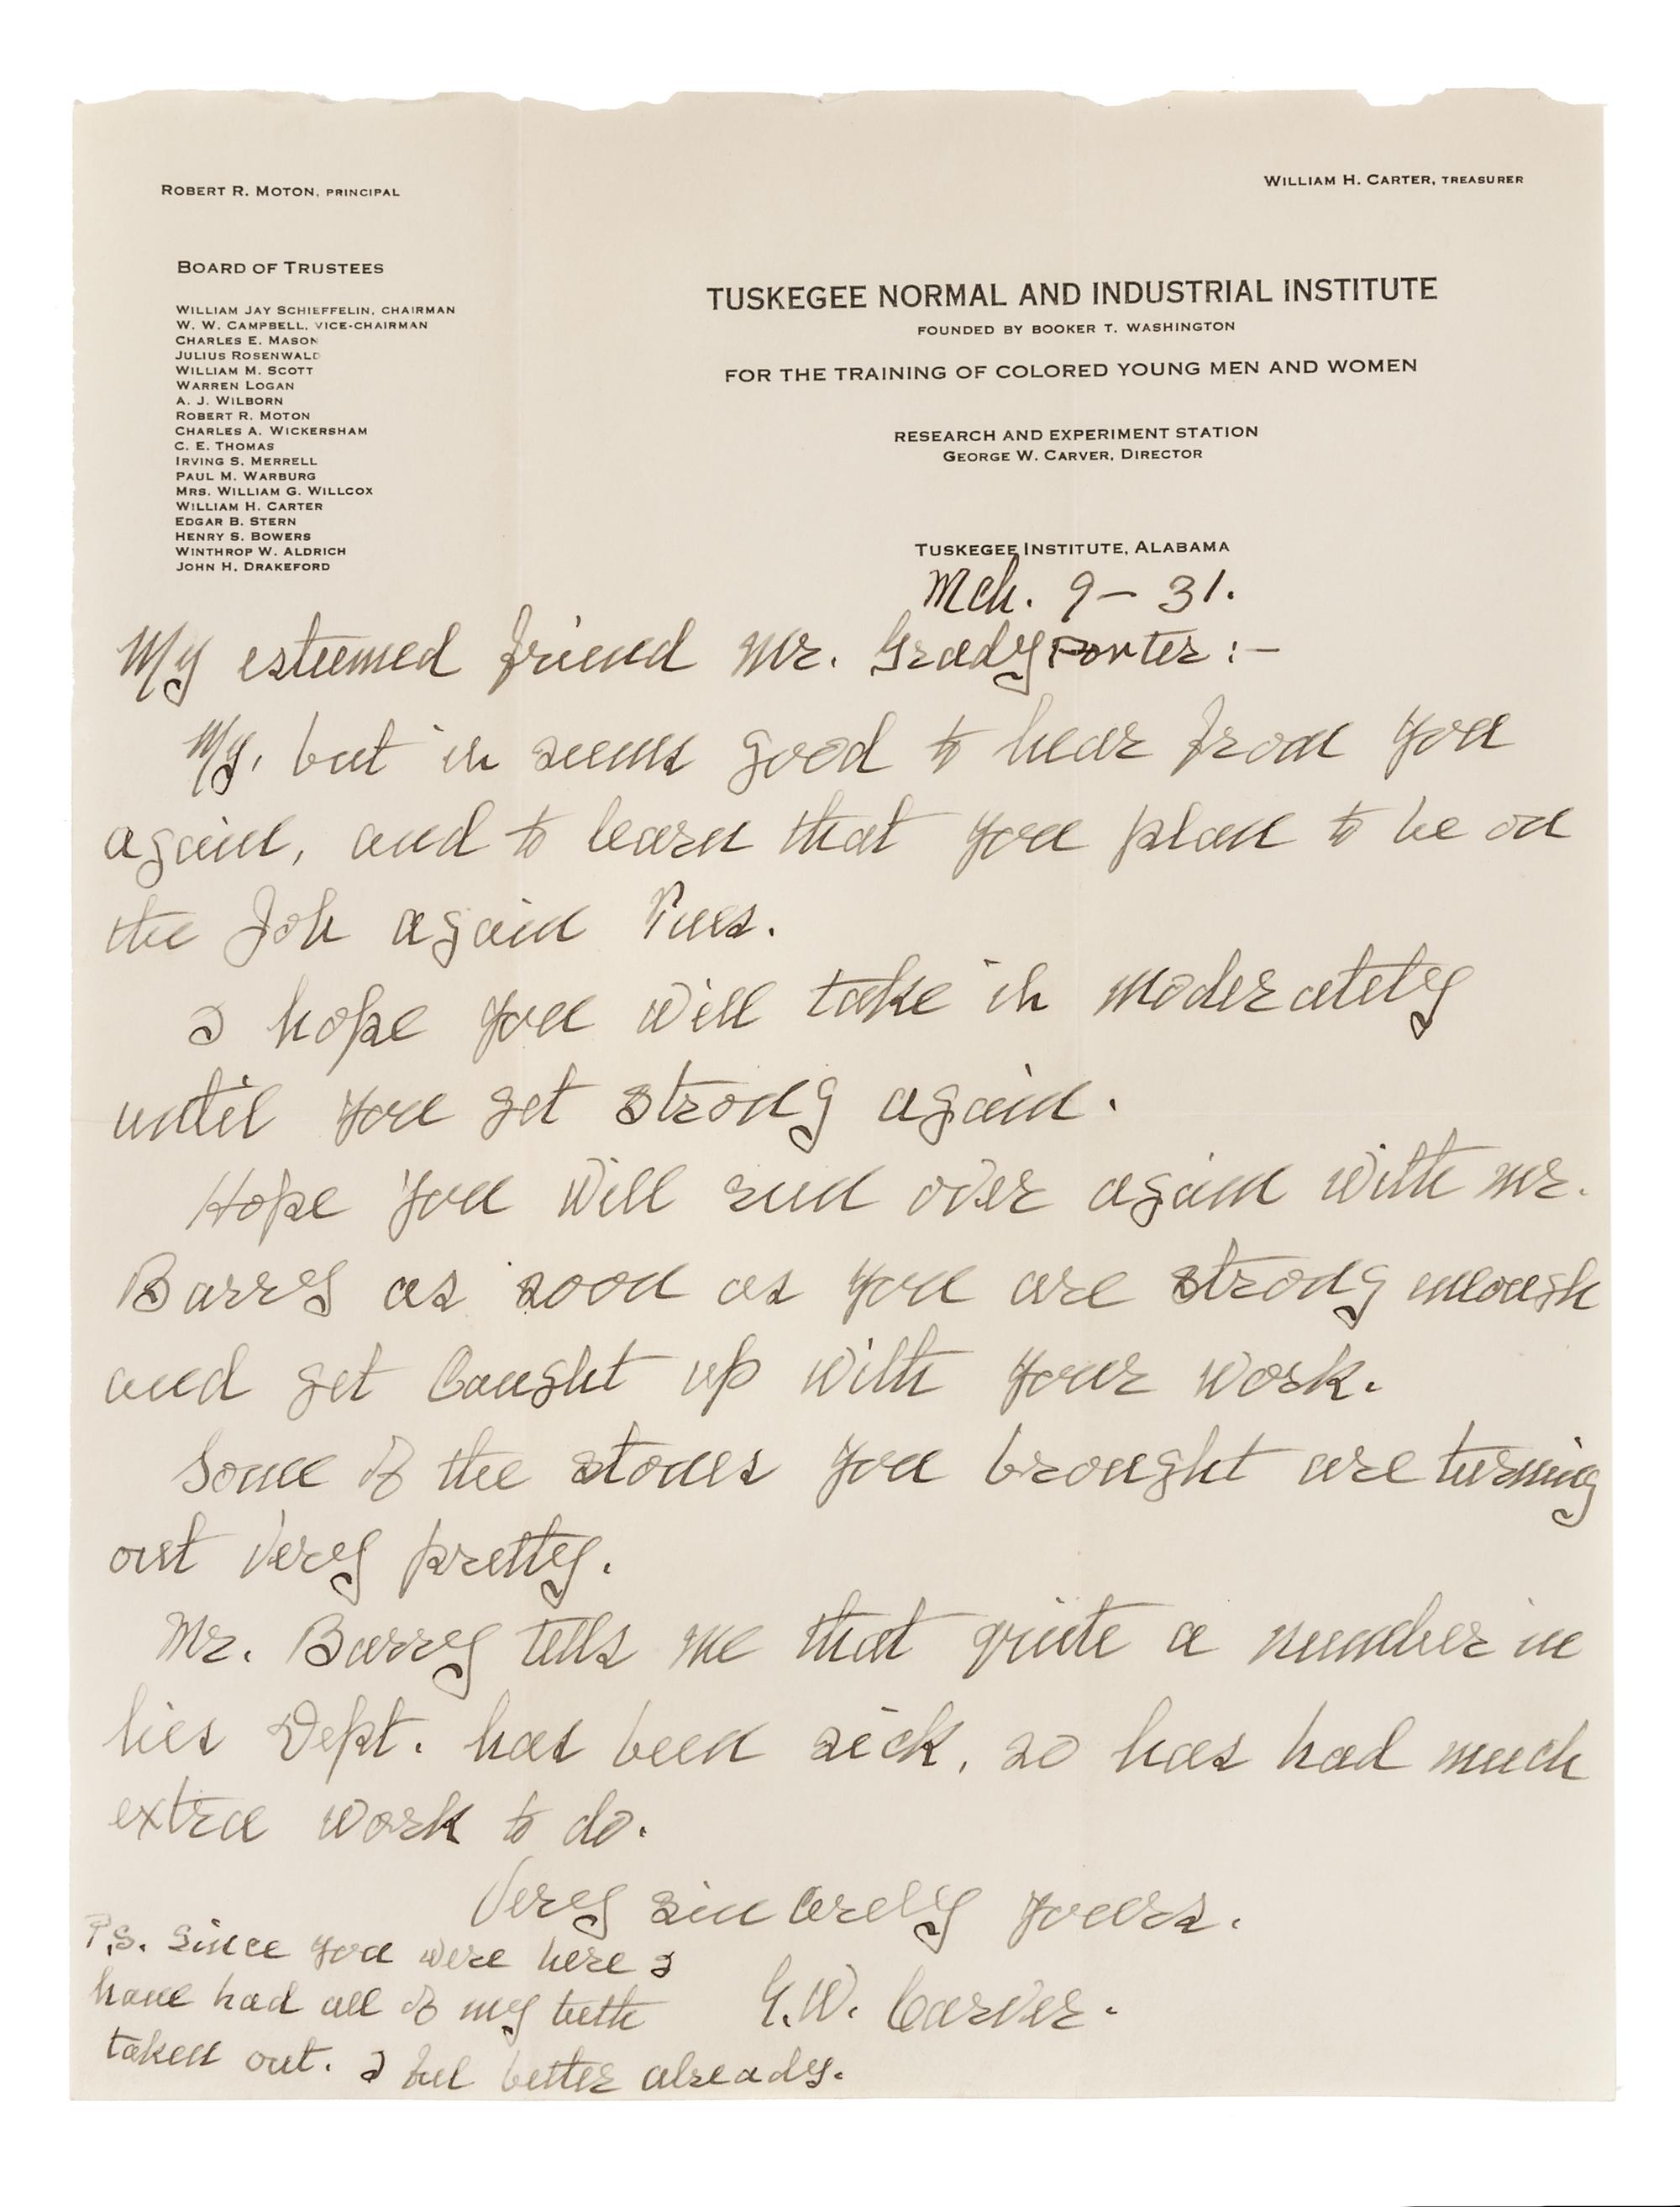 ROBERT R. MOTON, PRINCIPAL
WILLIAM H. CARTER, TREASURER
BOARD OF TRUSTEES
WILLIAM JAY SCHIEFFELIN, CHAIRMAN
W. W. CAMPBELL, VICE-CHAIRMAN
CHARLES E. MASON
JULIUS ROSENWALD
WILLIAM M. SCOTT
WARREN LOGAN
A. J. WILBORN
ROBERT R. MOTON
CHARLES A. WICKERSHAM
C. E. THOMAS
IRVING S. MERRELL
PAUL M. WARBURG
MRS. WILLIAM G. WILLCOX
WILLIAM H. CARTER
EDGAR B. STERN
HENRY S. BOWERS
WINTHROP W. ALDRICH
JOHN H. DRAKEFORD
TUSKEGEE NORMAL AND INDUSTRIAL INSTITUTE
FOUNDED BY BOOKER T. WASHINGTON
FOR THE TRAINING OF COLORED YOUNG MEN AND WOMEN
RESEARCH AND EXPERIMENT STATION
GEORGE W. CARVER, DIRECTOR
TUSKEGEE INSTITUTE, ALABAMA
Mch. 9 – 31.
My esteemed friend Mr. Grady Porter :–
My, but it seems good to hear from you
again, and to learn that you plan to be on
the job again Tues.
I hope you will take it moderately
until you get strong again.
Hope you will run over again with Mr.
Barry as soon as you are strong enough
and get caught up with your work.
Some of the stones you brought are turning
out very pretty.
Mr. Barry tells me that quite a number in
his Dept. has been sick, so has had much
extra work to do.
Very sincerely yours.
G.W. Carver.
P.S. Since you were here I
have had all of my teeth
taken out. I feel better already.